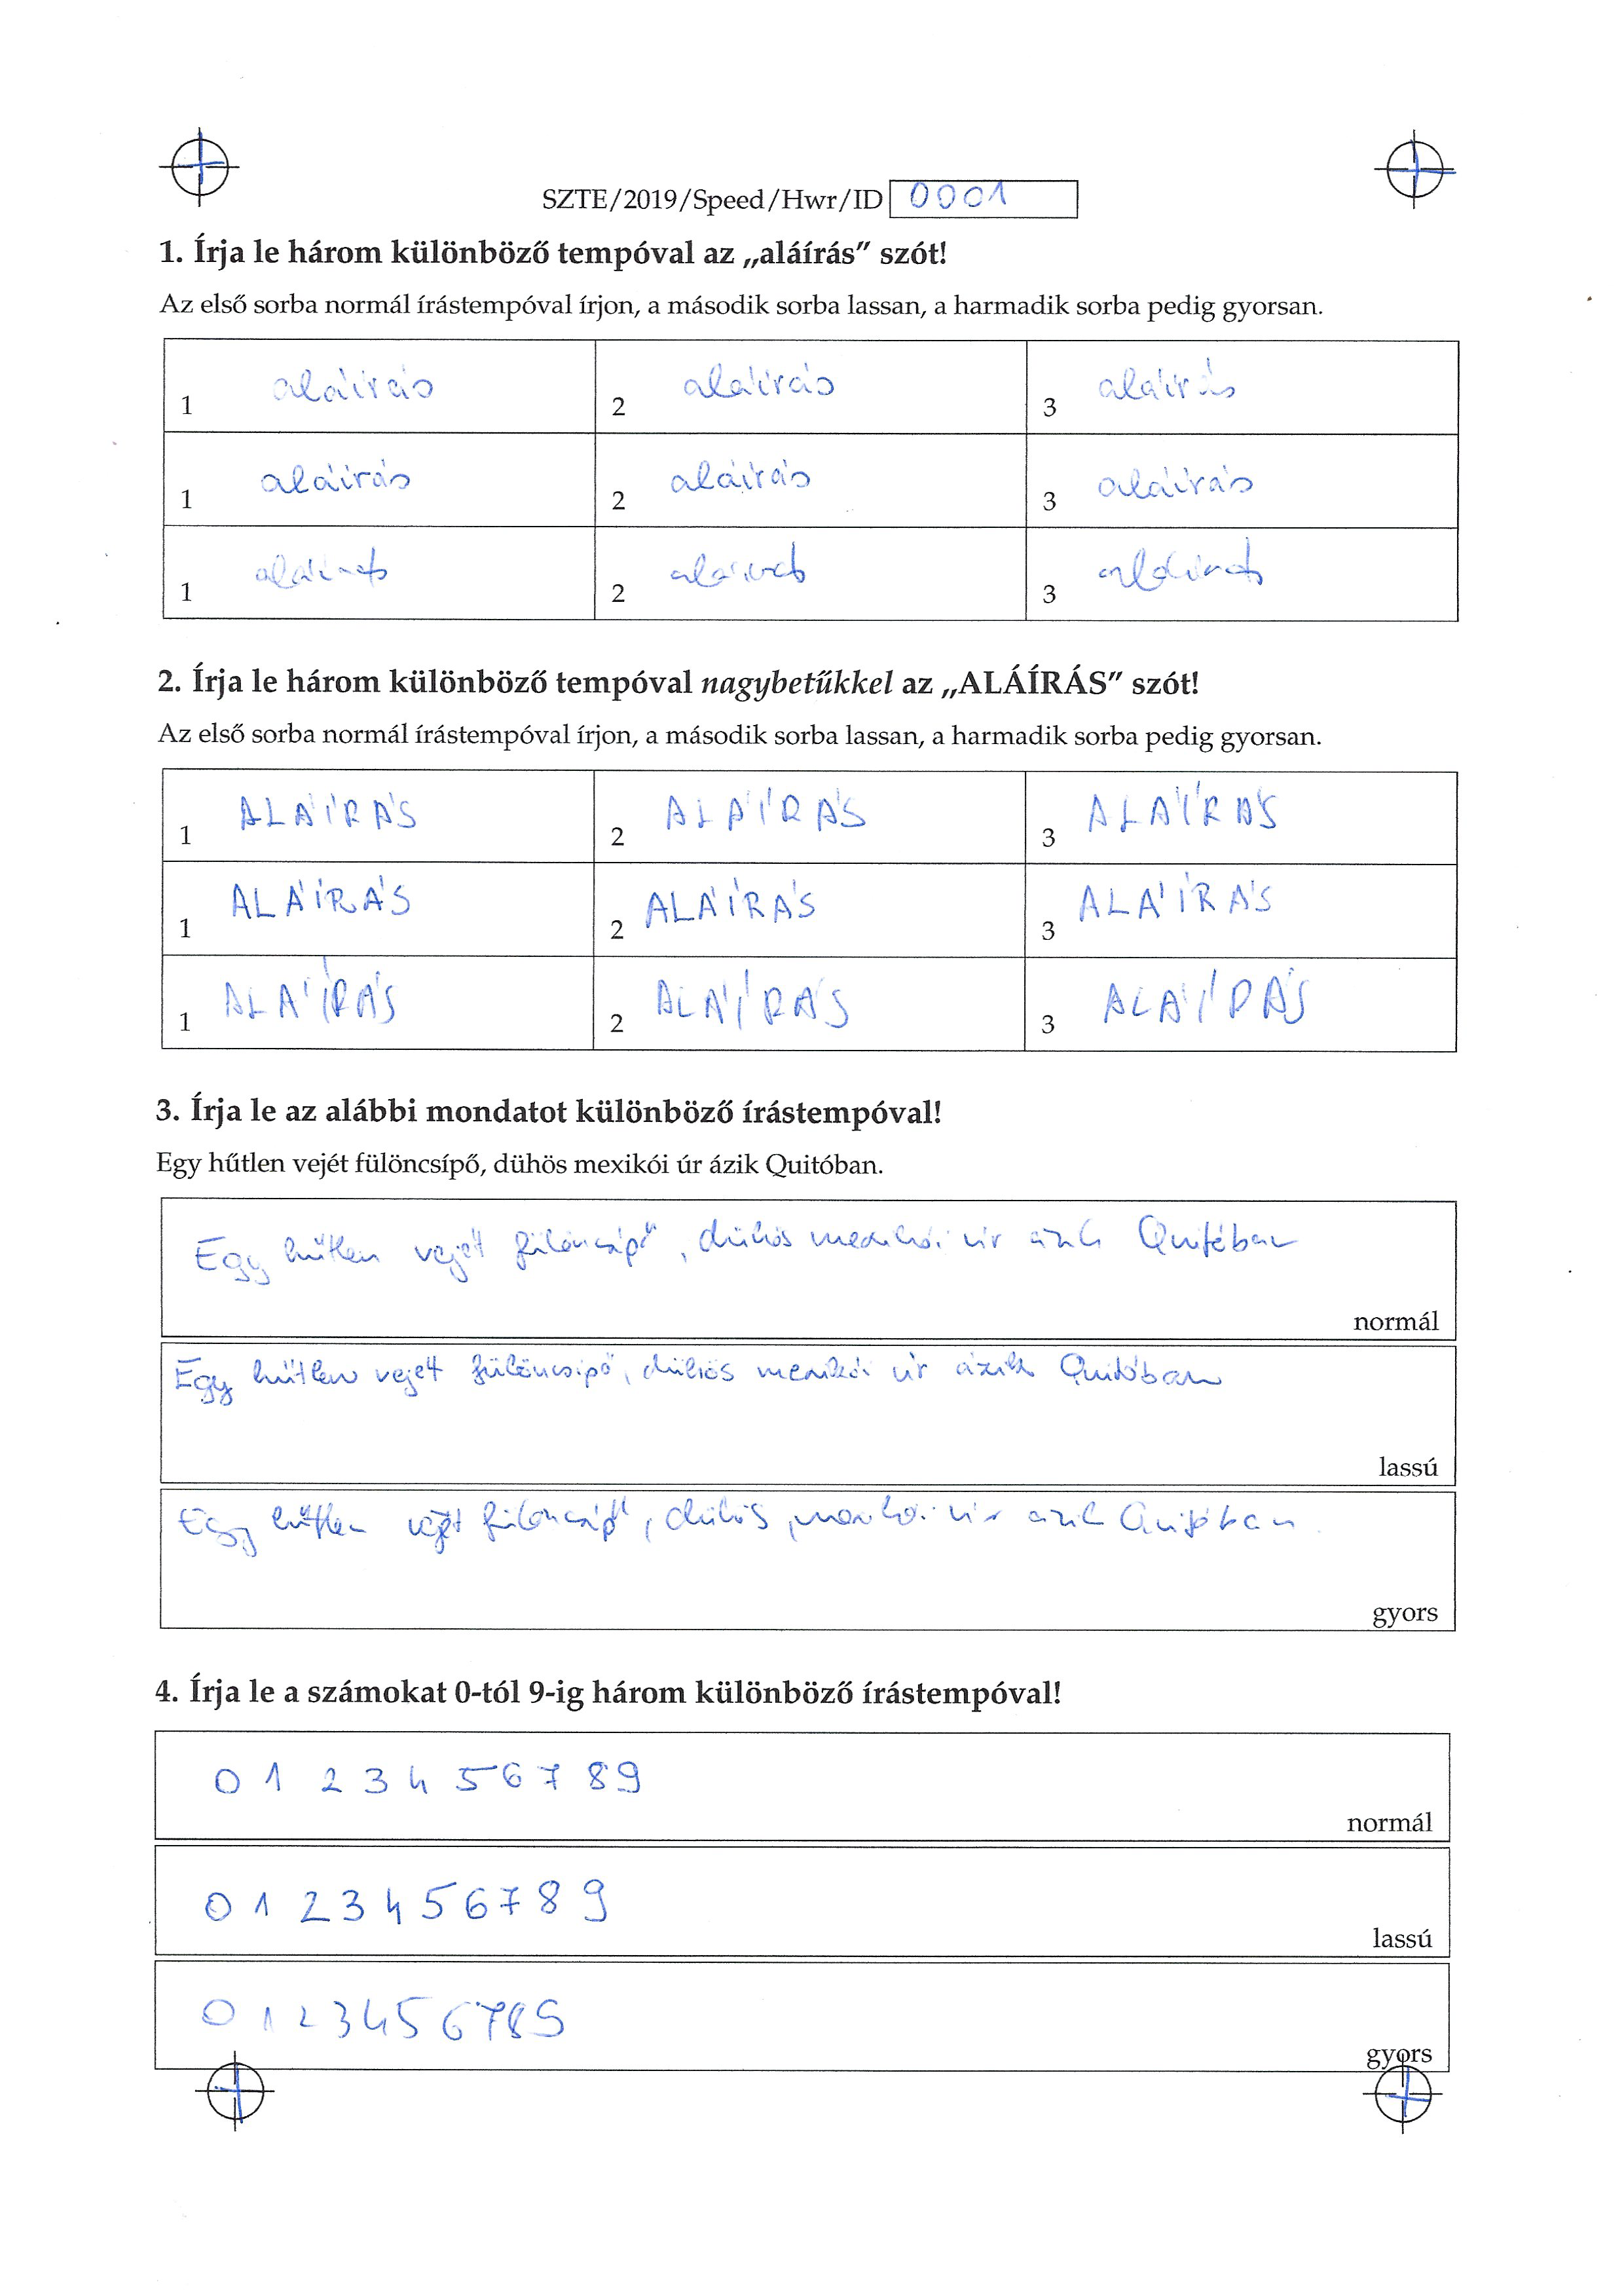 SZTE/2019/Speed/Hwr/ID 0001
1. Írja le három különböző tempóval az „aláírás” szót!
Az első sorba normál írástempóval írjon, a második sorba lassan, a harmadik sorba pedig gyorsan.
1 aláírás 2 aláírás 3 aláírás
1 aláírás 2 aláírás 3 aláírás
1 aláírás 2 aláírás 3 aláírás
2. Írja le három különböző tempóval nagybetűkkel az „ALÁÍRÁS” szót!
Az első sorba normál írástempóval írjon, a második sorba lassan, a harmadik sorba pedig gyorsan.
1 ALÁÍRÁS 2 ALÁÍRÁS 3 ALÁÍRÁS
1 ALÁÍRÁS 2 ALÁÍRÁS 3 ALÁÍRÁS
1 ALÁÍRÁS 2 ALÁÍRÁS 3 ALÁÍRÁS
3. Írja le az alábbi mondatot különböző írástempóval!
Egy hűtlen vejét fülöncsípő, dühös mexikói úr ázik Quitóban.
Egy hűtlen vejét fülöncsípő, dühös mexikói úr ázik Quitóban
normál
Egy hűtlen vejét fülöncsípő, dühös mexikói úr ázik Quitóban
lassú
Egy hűtlen vejét fülöncsípő, dühös mexikói úr ázik Quitóban.
gyors
4. Írja le a számokat 0-tól 9-ig három különböző írástempóval!
0 1 2 3 4 5 6 7 8 9
normál
0 1 2 3 4 5 6 7 8 9
lassú
0 1 2 3 4 5 6 7 8 9
gyors